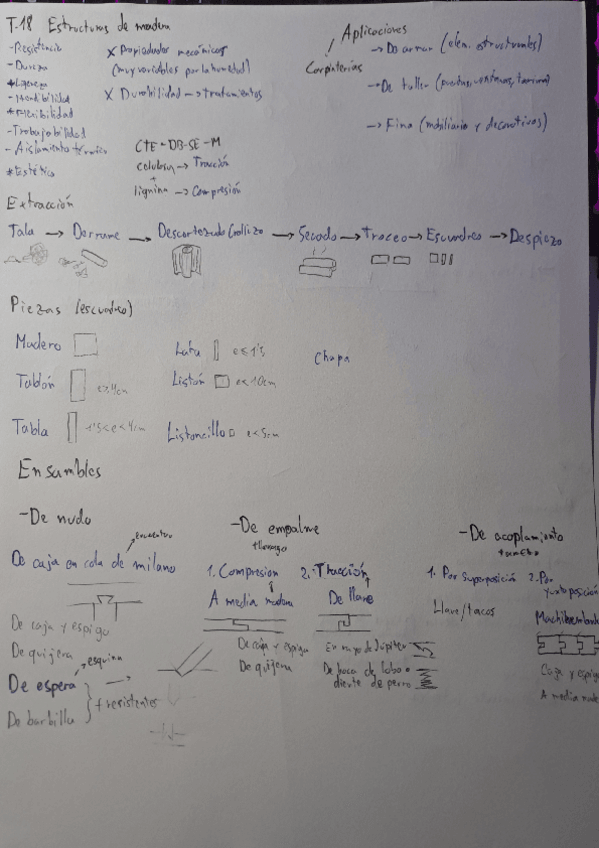 T.18 Estructuras de madera
- Resistencia
- Dureza
+ Ligereza
- Hendibilidad
+ Flexibilidad
- Trabajabilidad
- Aislamiento térmico
* Estética
X Propiedades mecánicas
(muy variables por la humedad)
X Durabilidad → tratamientos
CTE - DB-SE-M
celulosa → Tracción
+
lignina → Compresión
Aplicaciones
Carpinterías
→ De armar (elem. estructurales)
→ De taller (puertas, ventanas, tarima)
→ Fina (mobiliario y decorativos)
Extracción
Tala → Derrame → Descortezado (rollizo → Secado → Troceo → Escuadreo → Despiezo
Piezas (escuadreo)
Madero
Lata e≤1'5
Chapa
Tablón e>4cm
Listón e<10cm
Tabla 1'5<e<4cm
Listoncillo e<5cm
Ensambles
- De nudo
encuentro
De caja en cola de milano
De caja y espiga
De quijera
De espera → esquina
De barbilla
+ resistentes
- De empalme
+ largo
1. Compresión
A media madera
De caja y espiga
De quijera
2. Tracción
De llave
En rayo de Júpiter
De boca de lobo o
diente de perro
- De acoplamiento
1. Por superposición
Llave/tacos
2. Por
yuxtaposición
Machihembrado
Caja y espiga
A media made